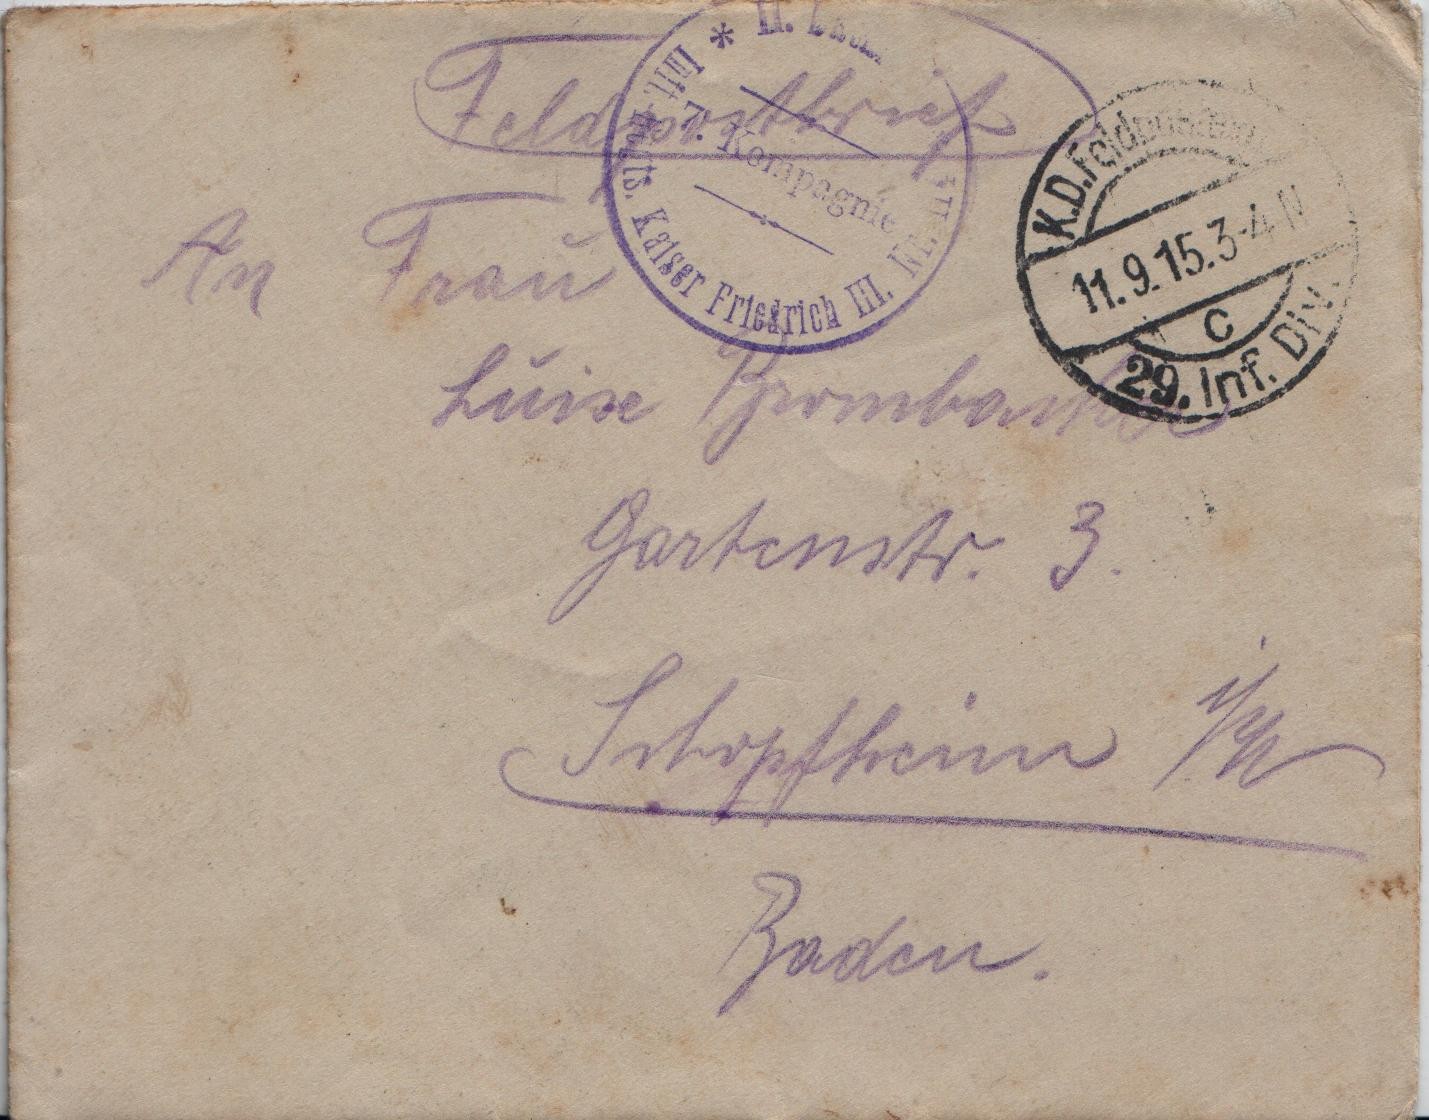 Feldpostbrief
7. Kompagnie
Kaiser Friedrich III. Nr.
K.D.Feldpost
11.9.15.3-4 N
C
29. Inf. Div.
An Frau
Luise Brombacher
Gartenstr. 3.
Schopfheim i/W
Baden.